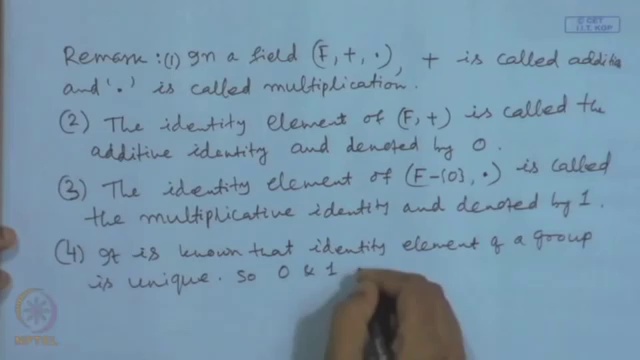 © CET
I.I.T. KGP
Remark : (1) In a field (F, +, ·), + is called additio
and '·' is called multiplication.
(2) The identity element of (F, +) is called the
additive identity and denoted by 0.
(3) The identity element of (F-{0}, ·) is called
the multiplicative identity and denoted by 1.
(4) It is known that identity element of a group
is unique. So 0 & 1
NPTEL